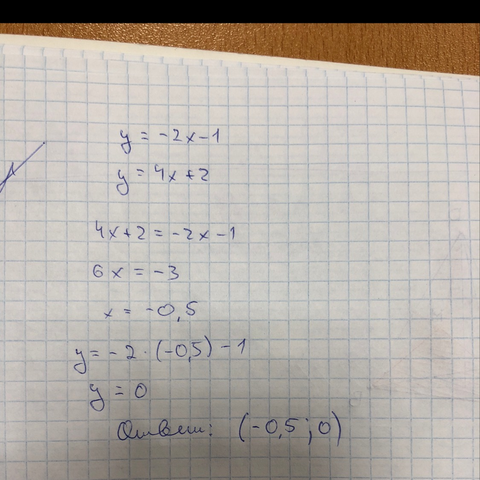 y = -2x-1
y = 4x+2
4x+2 = -2x-1
6x = -3
x = -0,5
y = -2·(-0,5)-1
y = 0
Ответ: (-0,5;0)